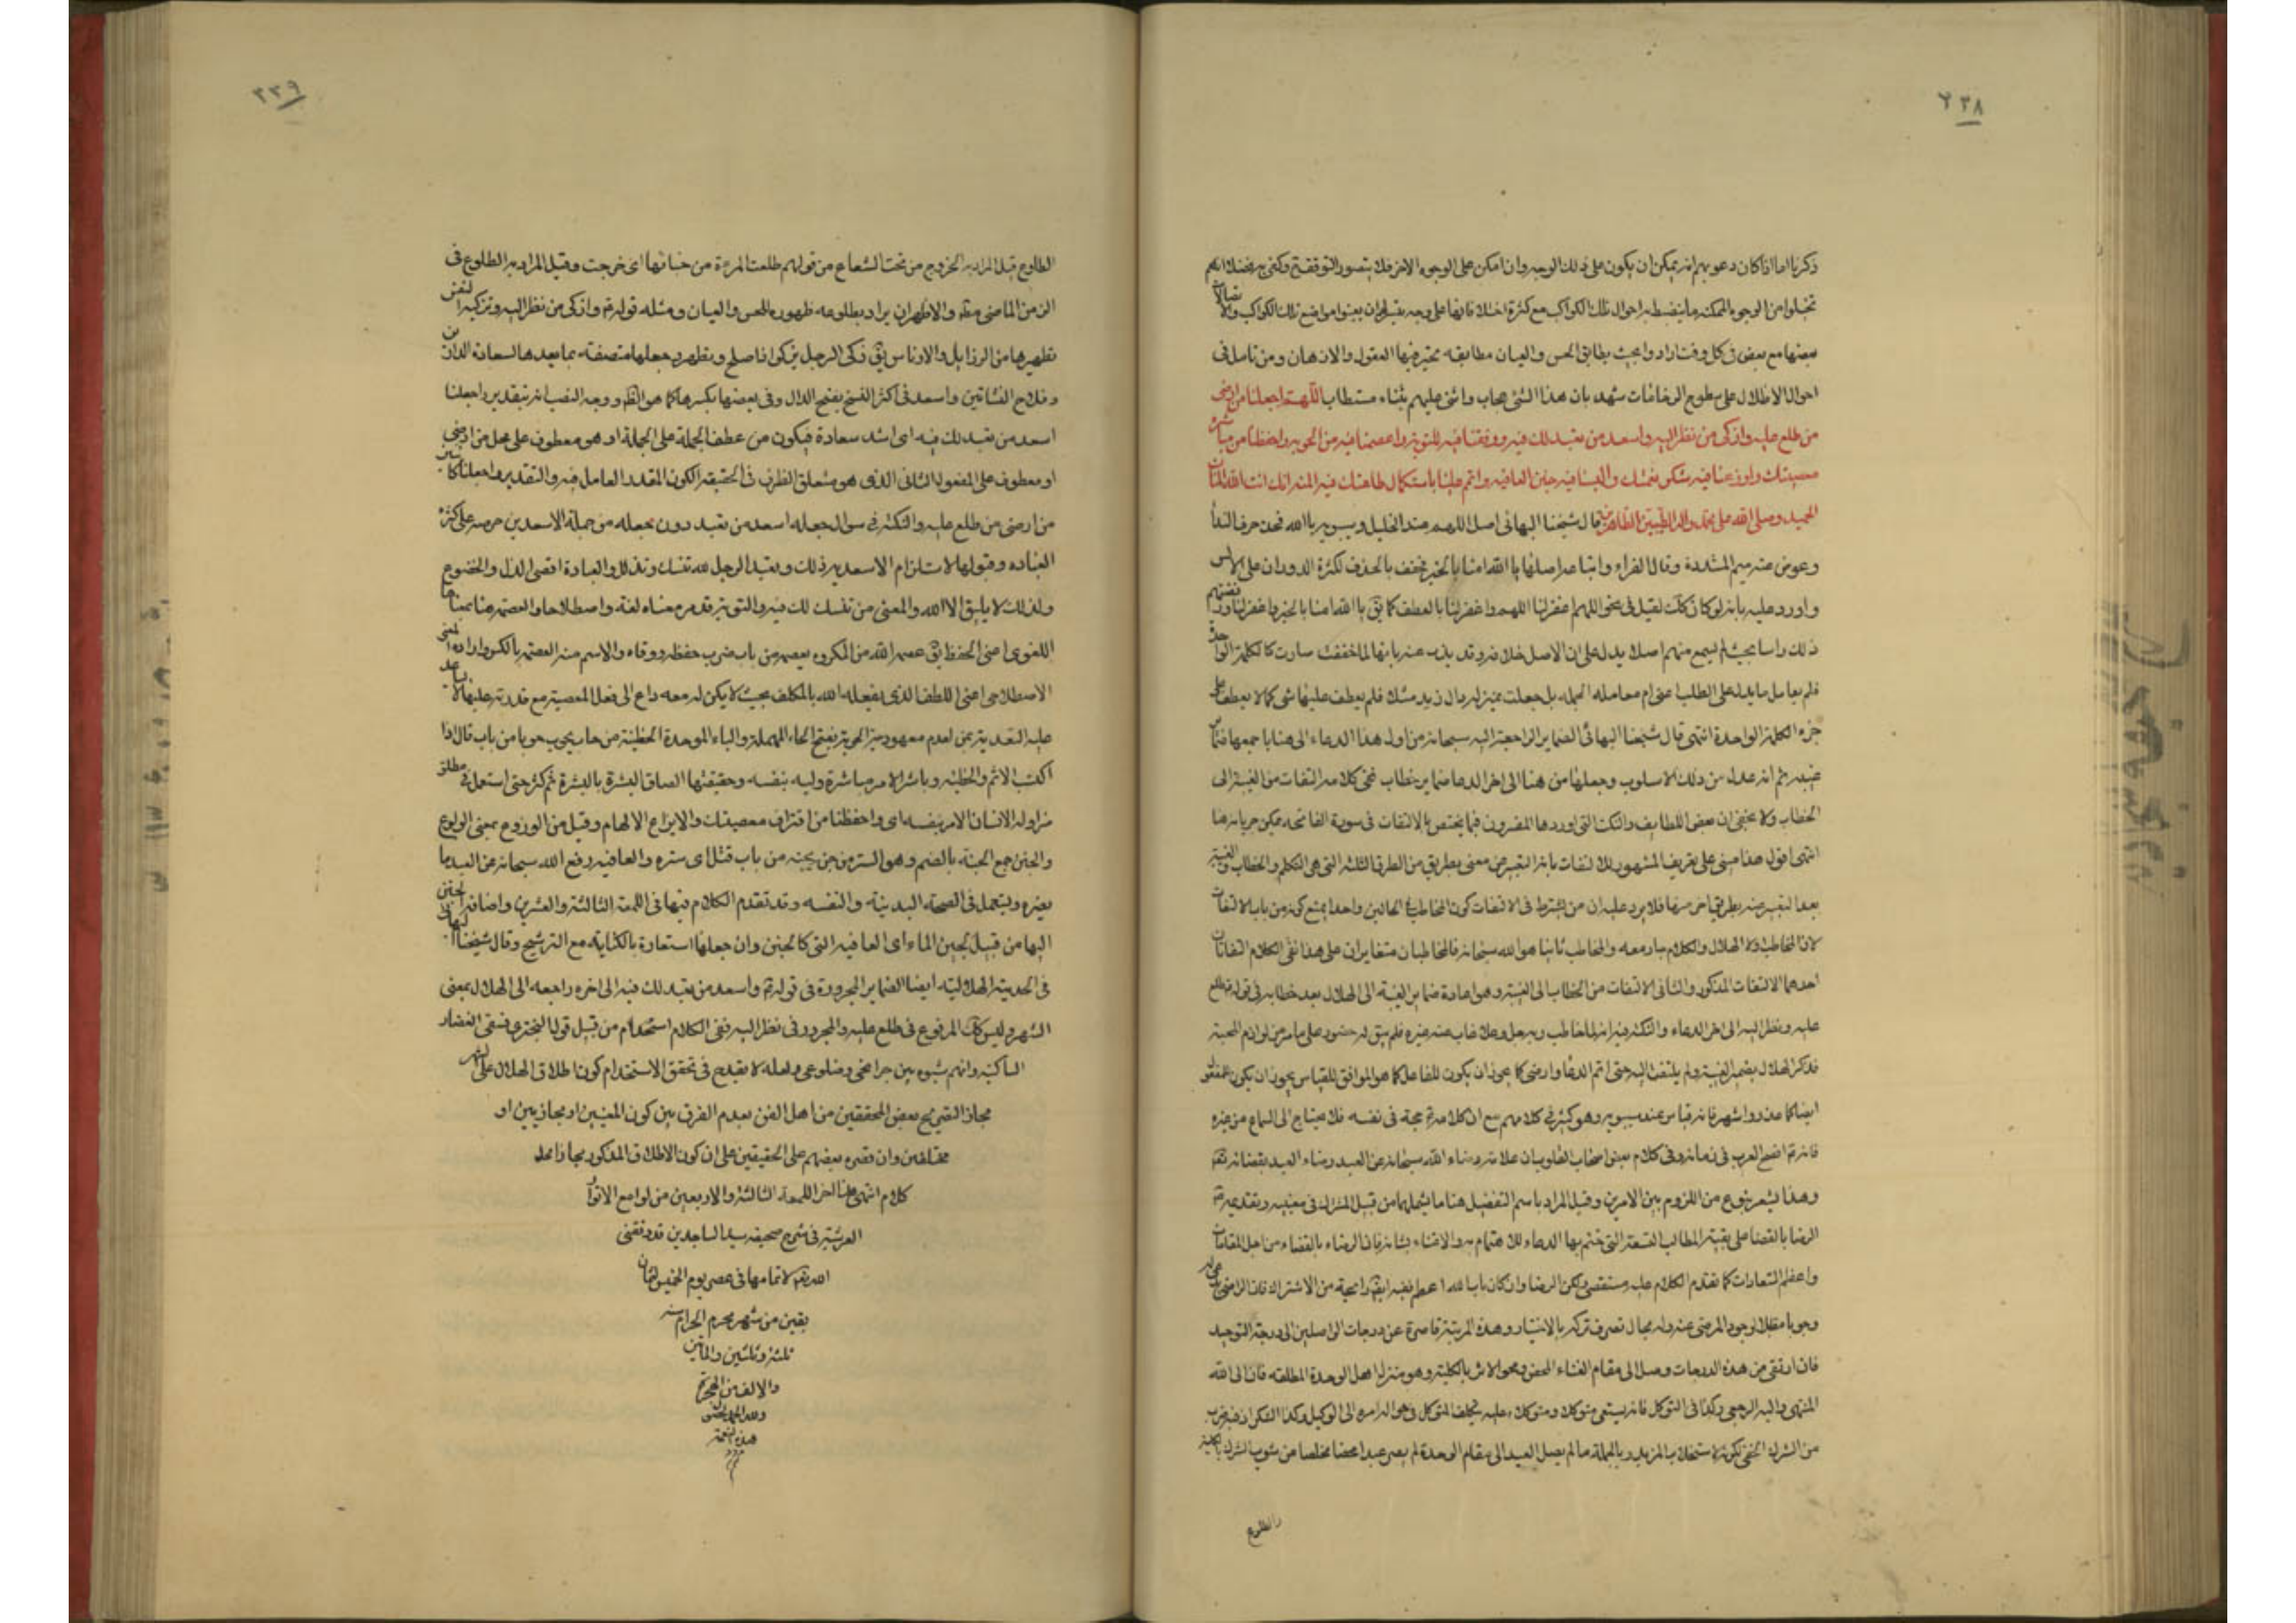 ٢٣٨
ذكرنا اما اذا كان دعويهم انه يمكن ان يكون على ذلك الوجه وان امكن على الوجوه الاخر فلا يتصور التوقف
تخيلوا من الوجوه الممكنه ما ينضبط به احوال تلك الكواكب مع كثرة اختلافاتها على وجه يتيسر لهم ان يعينوا مواضع تلك الكواكب
بعضها مع بعض فى كل وقت ارادوا بحيث يطابق الحس والعيان مطابقه يتحير فيها العقول والاذهان ومن تامل فى
احوال الاظلال على سطوح الرخامات شهد بان هذا لشئ عجاب واثنى عليهم بثناء مستطاب اللهم اجعلنا من ارضى
من طلع عليه وازكى من نظر اليه واسعد من تعبد لك فيه ووفقنا فيه للتوبة واعصمنا فيه من الحوبة واحفظنا من مباشرة
معصيتك واوزعنا فيه شكر نعمتك والبسنا فيه جنن العافيه واتمم علينا باستكمال طاعتك فيه المنة انك انت المنان
الحميد وصلى الله على محمد واله الطيبين الطاهرين قال شيخنا البهائى اصل اللهم عند الخليل وسيبويه يا الله فحذف حرف الندا
وعوض عنه ميم المشددة وقال الفراء واتباعه اصلها يا الله امنا بالخير فخفف بالحذف لكثرة الدوران على الالسن
واورد عليه بانه لو كان كذلك لقيل فى نحو اللهم اغفر لنا اللهم واغفر لنا بالعطف كما يق يا الله امنا بالخير واغفر لنا
ذلك راسا بحيث لم يسمع منهم اصلا يدل على ان الاصل خلافه وقد يذب عنه بانها لما خففت صارت كالكلمة الواحدة
فلم يعامل ما يدل على الطلب اعنى ام معاملة الجملة بل جعلت بمنزلة دال زيد مثلا فلم يعطف عليها شى كما لا يعطف على
جزء الكلمة الواحدة انتهى قال شيخنا البهائى الضماير الراجعة اليه سبحانه من اول هذا الدعاء الى هنا باجمعها ضماير
غيبه ثم انه عدل من ذلك الاسلوب وجعلها من هنا الى اخر الدعا ضماير خطاب ففى كلامه التفات من الغيبة الى
الخطاب ولا يخفى ان بعض اللطايف والنكت التى اوردها المفسرون فيما يختص بالالتفات فى سورة الفاتحه يمكن جريانه هنا
انتهى اقول هذا مبنى على تعريف المشهور للالتفات بانه التعبير عن معنى بطريق من الطرق الثلثه التى هى التكلم والخطاب والغيبة
بعد التعبير عنه بطريق اخر منها فلا يرد عليه ان من اشترط فى الالتفات كون المخاطب فى الحالين واحدا يمنع كونه من باب الالتفات
لان المخاطب اولا الهلال والكلام جار معه والمخاطب ثانيا هو الله سبحانه فالمخاطبان متغايران على هذا ففى الكلام التفاتان
احدهما الالتفات المذكور والثانى الالتفات من الخطاب الى الغيبة وهو اعادة ضماير الغيبة الى الهلال بعد خطابه فى قوله طلع
عليه ونظر اليه الى اخر الدعاء والنكتة فيه
فذكر الهلال بضمير الغيبة ولم يلتفت اليه حتى اتم الدعا وارضى كما يجوز ان يكون للفاعل كما هو الموافق للقياس يجوز ان يكون للمفعول
ايضا كما اعذر واشهر فانه قياس عند سيبويه وهو كثير فى كلامهم مع ان كلامه ع حجة فى نفسه فلا يحتاج الى السماع من غيره
فانه ع افصح العرب فى زمانه وفى كلام بعض اصحاب القلوب ان علامة رضاء الله سبحانه عن العبد رضاء العبد بقضائه تع
وهذا يشعر بنوع من اللزوم بين الامرين وقيل المراد باسم التفضيل هنا ما يشملهما من قبيل المشترك فى معنييه وتقديمه ع
الرضا بالقضا على بقية المطالب التسعة التى ختم بها الدعاء للاهتمام به والاعتناء بشانه فان الرضاء بالقضاء من اجل المقامات
واعظم السعادات كما تقدم الكلام عليه مستقصى لكن الرضا وان كان باب الله الاعظم ففيه ايضا رايحة من الاشتراك فان الراضى
وجوبا مقابلا لوجود المرضى عنه وله مجال تصرف تركه بالاختيار وهذه المرتبة قاصرة عن درجات الواصلين الى درجة التوحيد
فان ارتقى من هذه الدرجات وصل الى مقام الفناء المحض ومحو الاثر بالكلية وهو منزل اهل الوحدة المطلقه فان الى الله
المنتهى واليه الرجعى وكذا فى التوكل فانه يستدعى متوكلا ومتوكلا عليه
من الشرك الخفى لكونه لاستجلاب المزيد وبالجملة ما لم يصل العبد الى مقام الوحدة لم يصر عبدا محضا مخلصا من شوب الشرك بالكلية
والطلوع
٢٣٩
الطلوع قيل المراد به الخروج من تحت الشعاع من قولهم طلعت المرءة من خبائها اى خرجت وقيل المراد به الطلوع فى
الزمن الماضى مطلقا والاظهر ان يراد بطلوعه ظهوره للحس والعيان ومثله قوله ع وازكى من نظر اليه وتزكية النفس
تطهيرها من الرذايل والادناس يق زكى الرجل يزكو اذا صلح وتطهر وجعلها متصفة بما يعدها لسعادة الدارين
وفلاح النشاتين واسعد فى اكثر النسخ بفتح الدال وفى بعضها بكسرها كما هو الظ ووجه النصب انه بتقدير واجعلنا
اسعد من تعبد لك فيه اى اشد سعادة فيكون من عطف الجملة على الجملة او هو معطوف على محل من ارضى
او معطوف على المفعول الثانى الذى هو متعلق الظرف فى الحقيقه لكون المقدر العامل فيه والتقدير واجعلنا كائنين
من ارضى من طلع عليه والنكتة فى سوال جعله اسعد من تعبد دون جعله من جملة الاسعدين حرصه على كثرة
العباده وقبولها لاستلزام الاسعدية ذلك وتعبد الرجل لله تنسك وتذلل والعبادة اقصى الذل والخضوع
ولذلك لا يليق الا الله والمعنى من تنسك لك فيه والتوبة قد مر معناه لغة واصطلاحا والعصمة هنا بمعناها
اللغوى اعنى الحفظ يق عصمه الله من المكروه يعصمه من باب ضرب حفظه ووقاه والاسم منه العصمة بالكسر وارادة المعنى
الاصطلاحى اعنى اللطف الذى يفعله الله بالمكلف بحيث لا يكن له معه داع الى فعل المعصية مع قدرته عليها لا يساعد
عليه التعدية بمن لعدم معهوديته والحوبة بفتح الحاء المهملة والباء الموحدة الخطيئة من حاب يحوب حوبا من باب قال اذا
اكتسب الاثم والخطيئه وباشر الامر مباشرة وليه بنفسه وحقيقتها الصاق البشرة بالبشرة ثم كثر حتى استعمل فى مطلق
مزاولة الانسان الامر بنفسه اى واحفظنا من اقتراف معصيتك والايزاع الالهام وقيل من الوزوع بمعنى الولوع
والجنن جمع الجنة بالضم وهو الستر من جن يجنه من باب قتل اى ستره والعافيه دفع الله سبحانه عن العبد ما
يضره ويستعمل فى الصحة البدنية والنفسه وقد تقدم الكلام فيها فى اللمعة الثالثة والعشرين واضافة الجنن
اليها من قبيل لجين الماء اى العافيه التى كالجنن وان جعلها استعارة بالكناية مع الترشيح وقال شيخنا البهائى
فى الحديقة الهلاليه ايضا الضماير المجرورة فى قوله ع واسعد من تعبد لك فيه الى اخره راجعه الى الهلال بمعنى
الشهر وليس كك المرفوع فى طلع عليه والمجرور فى نظر اليه ففى الكلام استخدام من قبيل قول البحترى فسقى الغضا
والساكنيه وانهم شبوه بين جوانحى وضلوعى ولعله لا يقدح فى تحقق الاستخدام كون اطلاق الهلال على الشهر
مجازا لتصريح بعض المحققين من اهل الفن بعدم الفرق بين كون المعنيين او مجازيين او
مختلفين وان قصره بعضهم على الحقيقين على ان كون الاطلاق المذكور مجازا محل
كلام انتهى هذا اخر اللمعة الثالثة والاربعين من لوامع الانوار
العرشية فى شرح صحيفة سيد الساجدين قد وفقنى
الله تع لاتمامها فى عصر يوم الخميس لثمان
بقين من شهر محرم الحرام سنه
ثلثة وثلثين والماتين
والالف من الهجرة
ولله الحمد على
هذه النعمة